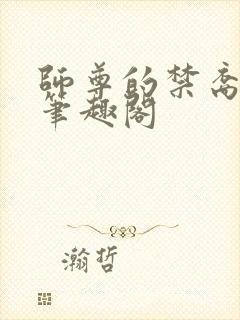 師尊的禁脔
筆趣閣
瀚哲